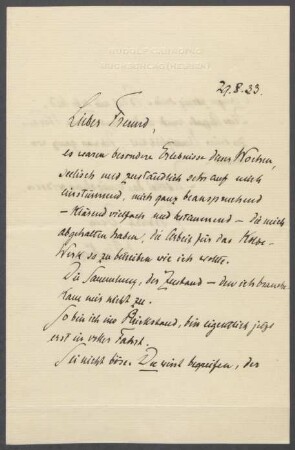 29.8.33.
Lieber Freund,
es waren besondere Erlebnisse dieser Wochen,
seelisch und zuständlich sehr auf mich
einstürmend, mich ganz beanspruchend
– klärend vielfach und bestimmend – die mich
abgehalten haben, die Arbeit für das Kolbe-
Werk so zu betreiben wie ich wollte.
Die Sammlung, der Zustand – den ich brauche
kam mir nicht zu.
So bin ich im Rückstand, bin eigentlich jetzt
erst in voller Fahrt.
Sei nicht böse. Du wirst begreifen, der